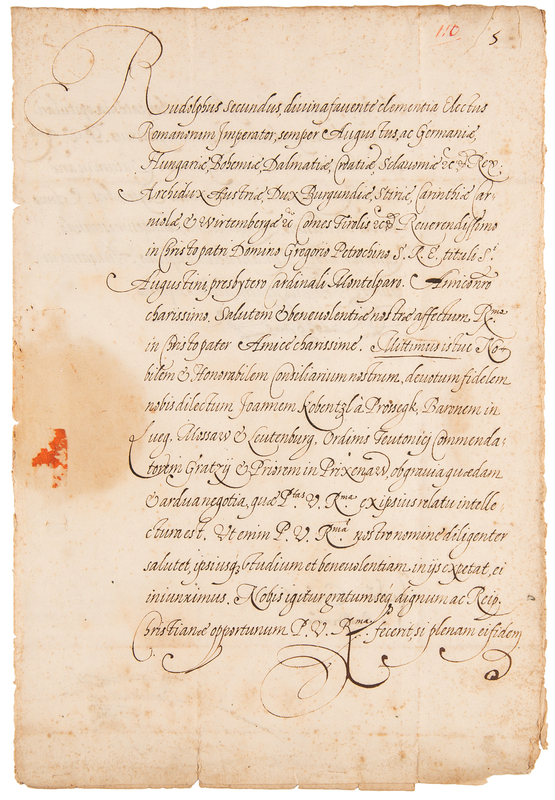 150 5
Rudolphus secundus, divina favente clementia Electus
Romanorum Imperator, semper Augustus, ac Germaniæ,
Hungariæ, Bohemiæ, Dalmatiæ, Croatiæ, Sclavoniæ &c. Rex,
Archidux Austriæ, Dux Burgundiæ, Stiriæ, Carinthiæ car-
niolæ, & Wirtembergæ &c. Comes Tirolis &c. Reverendissimo
in Christo patri Domino Gregorio Petrochino S. R. E. tituli S.ti
Augustini, presbytero Cardinali Montelparo. Amico nro
charissimo, Salutem & benevolentiæ nostræ affectum. R.me
in Christo pater Amice charissime. Mittimus istuc No-
bilem & Honorabilem Consiliarium nostrum, devotum fidelem
nobis dilectum Joannem Kobentzl à Prossegk, Baronem in
Lueg, Mossaw & Leutenburg, Ordinis Teutonici Commenda-
torem Gratzij & Priorem in Prixenaw, ob gravia quædam
& ardua negotia, quæ P.tas V. R.ma ex ipsius relatu intelle
ctura est. Ut enim P. V. R.mã nostro nomine diligenter
salutet, ipsiusq; studium et benevolentiam in ijs expetat, ei
iniunximus. Nobis igitur gratum seq; dignum ac Reip.
Christianæ opportunum P. V. R.ma fecerit, si plenam ei fidem